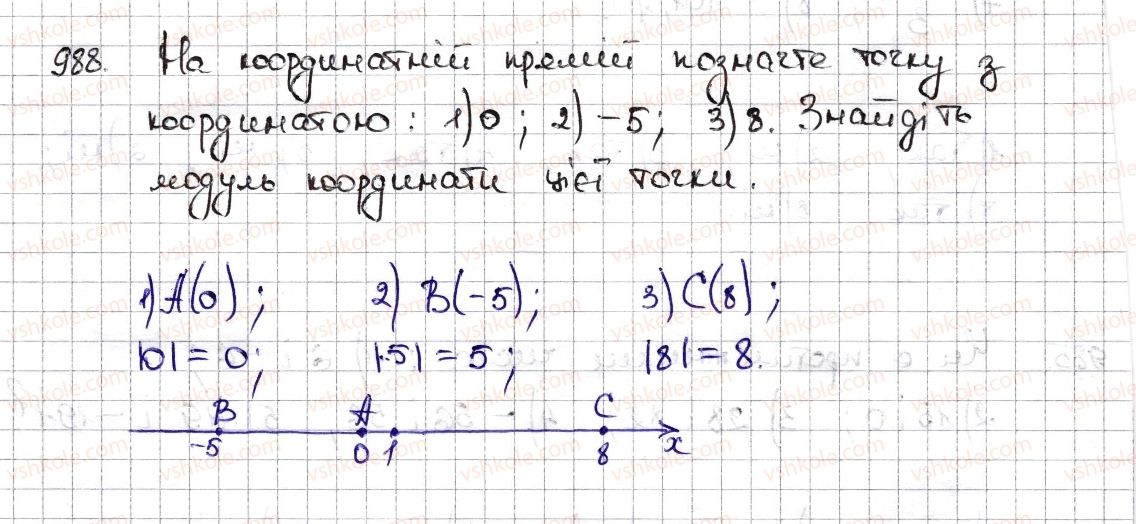 988. На координатній прямій позначте точку з
координатою: 1) 0; 2) -5; 3) 8. Знайдіть
модуль координати цієї точки.
1) A(0); 2) B(-5); 3) C(8);
|0| = 0; |-5| = 5; |8| = 8.
B A C
-5 0 1 8 x